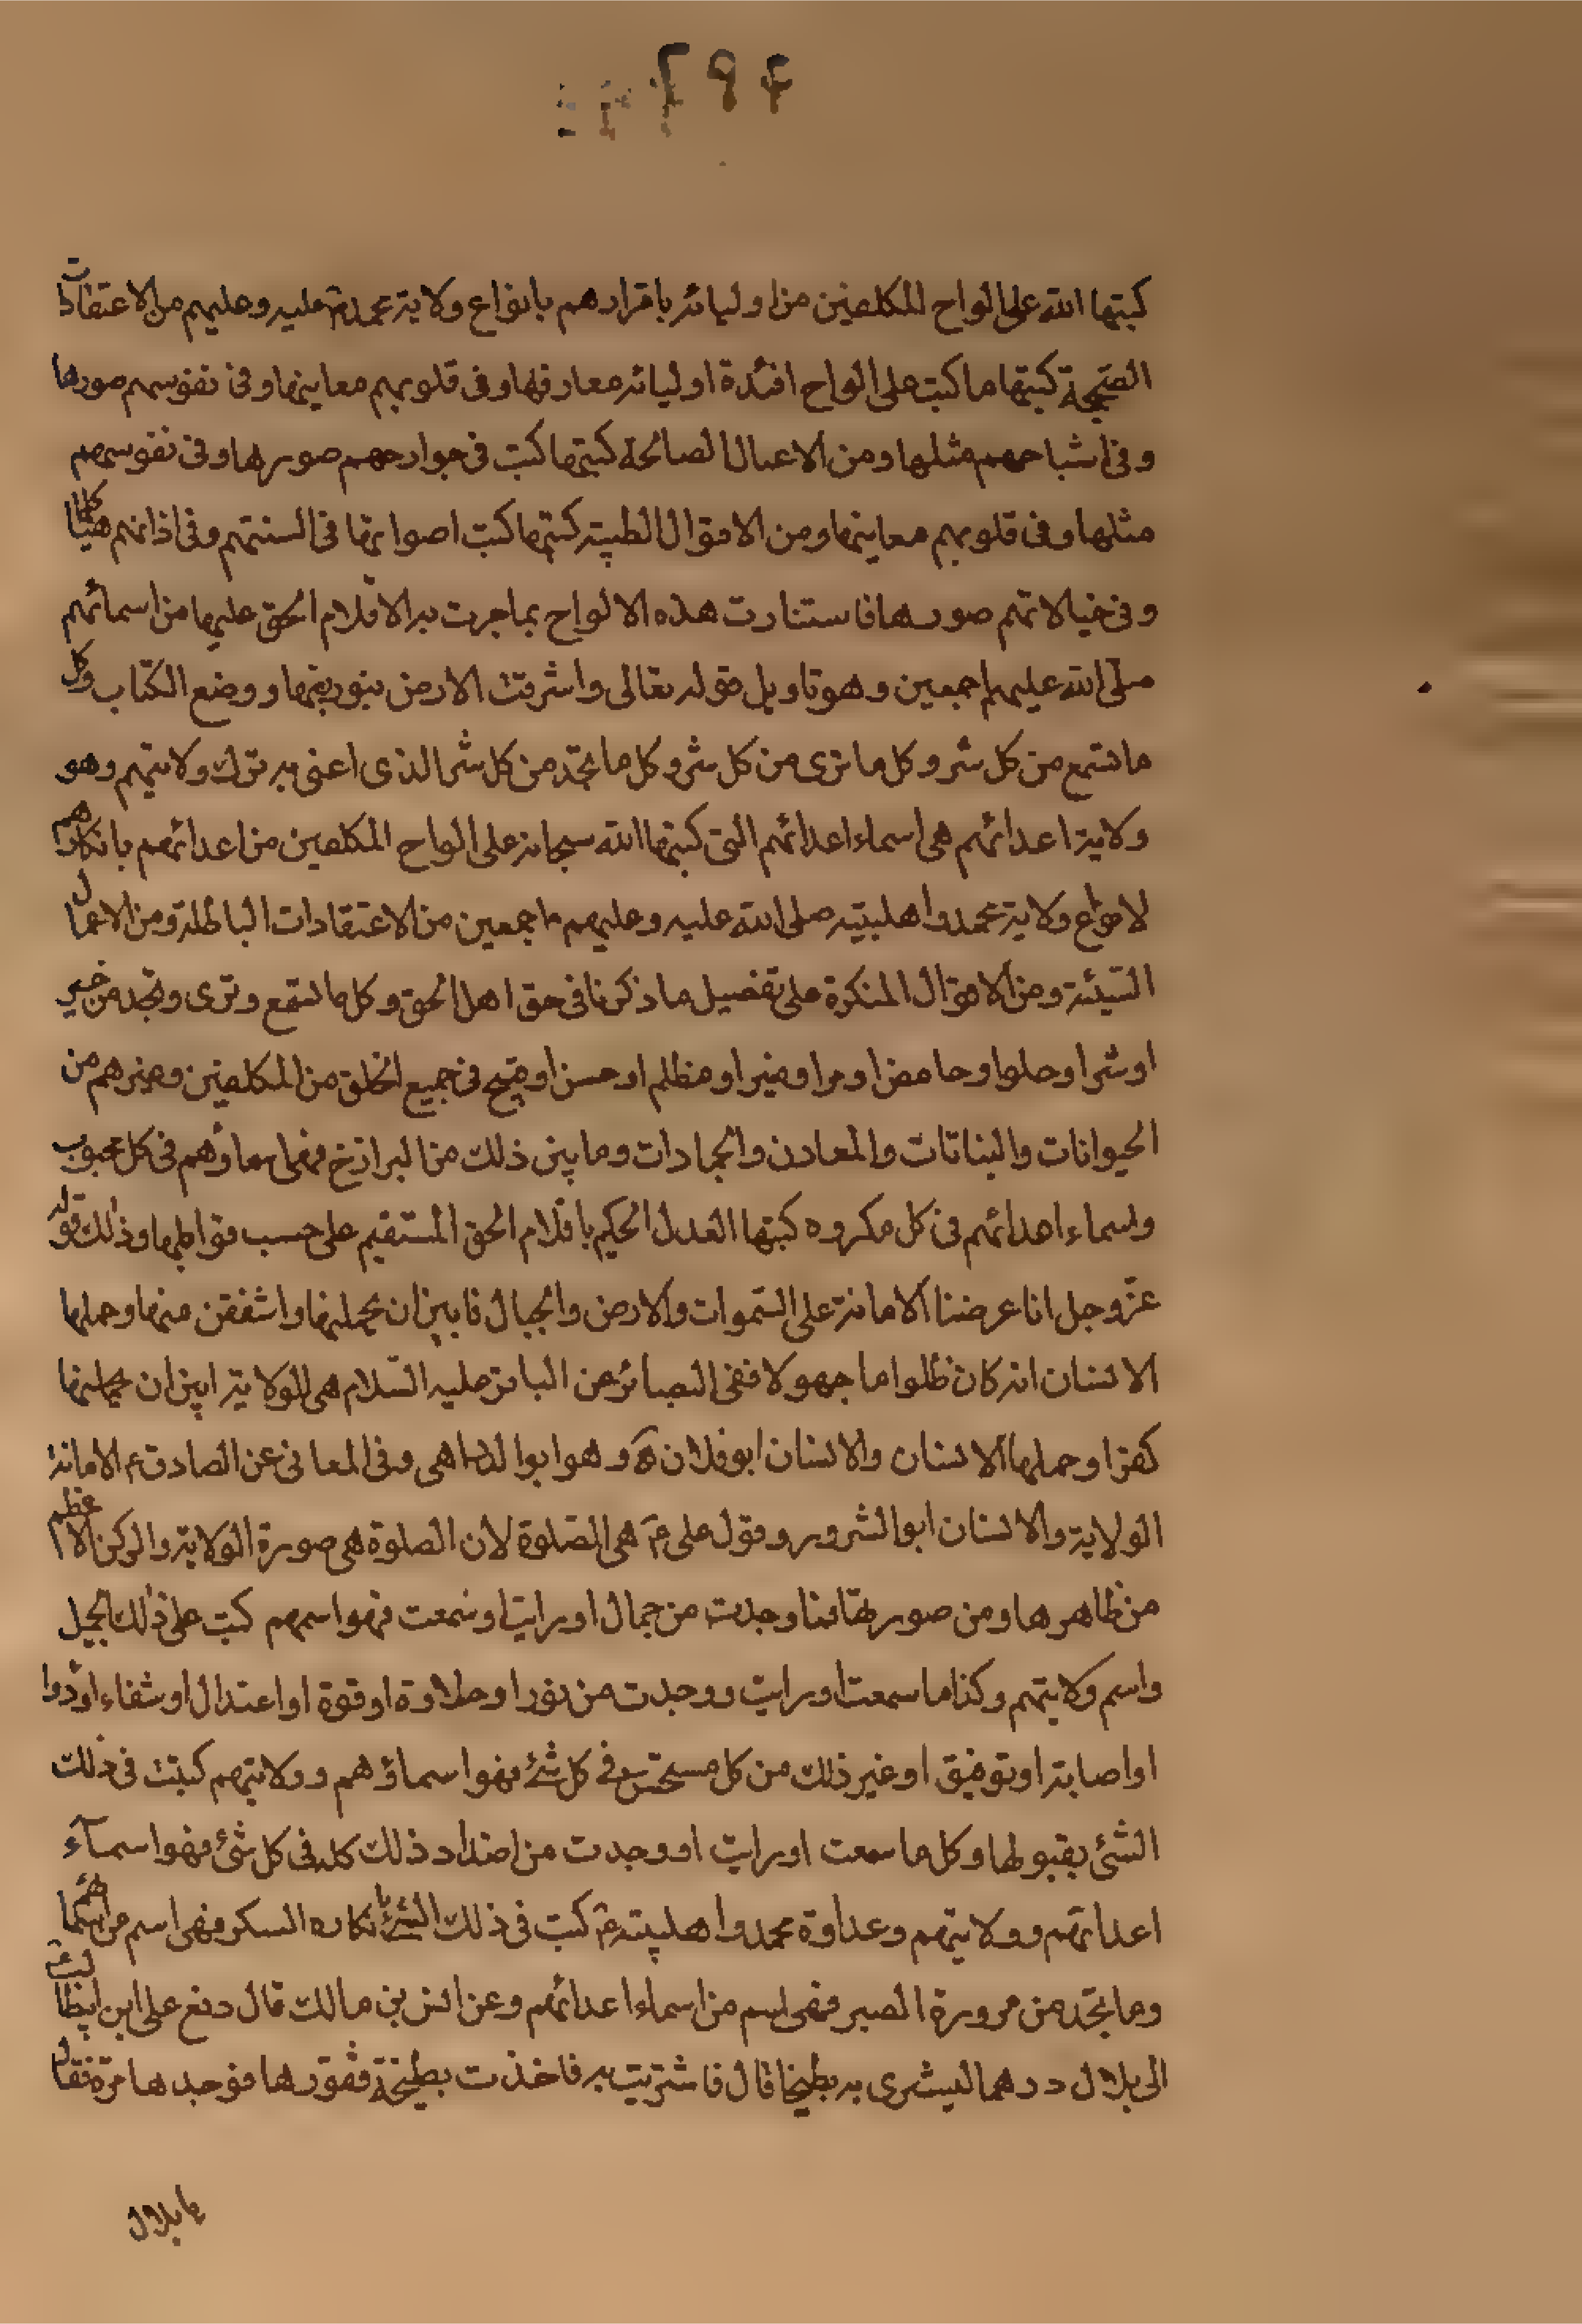 كتبها الله على الواح المكلفين من اوليائه باقرارهم بانواع ولاية محمد عليه وعليهم من الاعتقادات
الصحيحة كتبها ما كتب على الواح افئدة اوليائه معارفها وفى قلوبهم معاينها وفى نفوسهم صورها
وفى اشباحهم مثلها ومن الاعمال الصالحة كتبها كتب فى جوارحهم صورها وفى نفوسهم
مثلها وفى قلوبهم معاينها ومن الاقوال الطيبة كتبها كتب اصواتها فى السنتهم وفى اذانهم
وفى خيالاتهم صورها فاستنارت هذه الالواح بما جرت به الاقلام الحق عليها من اسمائهم
صلى الله عليهم اجمعين وهو تاويل قوله تعالى واشرقت الارض بنور ربها ووضع الكتاب وكل
ما تسمع من كل شر وكل ما ترى من كل شر وكل ما تجد من كل شر الذى اعنى به ترك ولايتهم وهو
ولاية اعدائهم هى اسماء اعدائهم التى كتبها الله سبحانه على الواح المكلفين من اعدائهم بانكارهم
لانواع ولاية محمد واهل بيته صلى الله عليه وعليهم اجمعين من الاعتقادات الباطلة ومن الاعمال
السيئة ومن الاقوال المنكرة على تفصيل ما ذكرنا فى حق اهل الحق وكل ما تسمع وترى وتجد من خير
او شر او حلو او حامض او مر او منير او مظلم او حسن او قبيح فى جميع الخلق من المكلفين وغيرهم من
الحيوانات والنباتات والمعادن والجمادات وما بين ذلك من البرازخ فهى اسماؤهم فى كل محبوب
واسماء اعدائهم فى كل مكروه كتبها العدل الحكيم باقلام الحق المستقيم على حسب قوابلها وذلك قوله
عزّ وجل انا عرضنا الامانة على السموات والارض والجبال فابين ان يحملنها واشفقن منها وحملها
الانسان انه كان ظلوما جهولا ففى البصائر عن الباقر عليه السّلام هى الولاية ابين ان يحملنها
كفرا وحملها الانسان والانسان ابو فلان وهو ابو الدواهى وفى المعانى عن الصادق ع الامانة
الولاية والانسان ابو الشرور وقول على ع هى الصّلوة لان الصلوة هى صورة الولاية والركن الاعظم
من ظاهرها ومن صورتها فما وجدت من جمال او رايت او سمعت فهو اسمهم كتب على ذلك الجميل
واسم ولايتهم وكذا ما سمعت او رايت ووجدت من نور او حلاوة او قوة او اعتدال او شفاء او دوا
او اصابة او توفيق او غير ذلك من كل مستحسن فى كل شئ فهو اسماؤهم وولايتهم كتبت فى ذلك
الشئ بقبولها وكل ما سمعت او رايت او وجدت من اضداد ذلك كله فى كل شئ فهو اسمآء
اعدائهم وولايتهم وعداوة محمد واهل بيته ع كتب فى ذلك الشئ بانكاره السكر فهى اسم من اسمائهم
وما تجد من مرورة الصبر فهى اسم من اسماء اعدائهم وعن انس بن مالك قال دفع على ابن ابيطالب
الى بلال درهما ليشترى به بطيخا قال فاشتريت به فاخذت بطيخة فقورها فوجدها مرة فقال
يا بلال